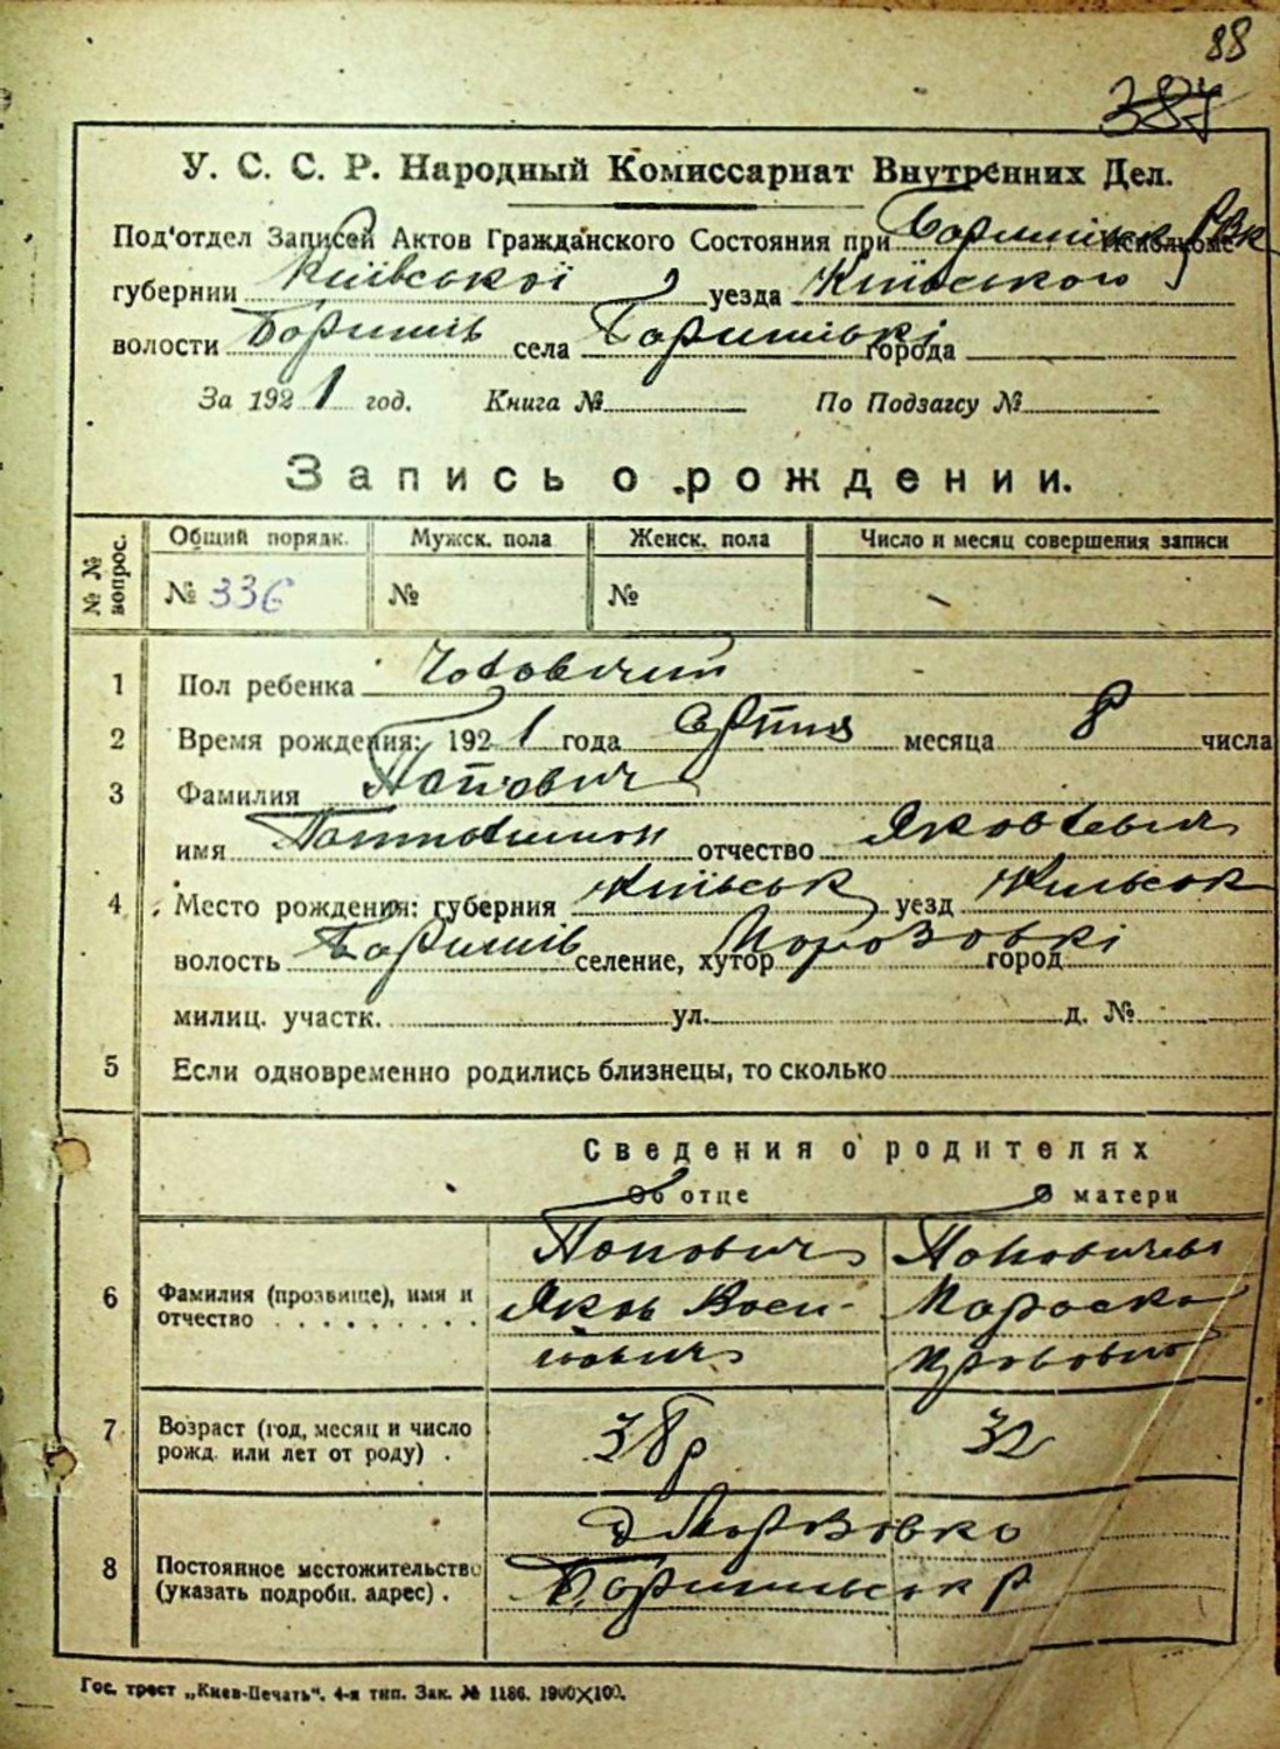 88
387
У. С. С. Р. Народный Комиссариат Внутренних Дел.
Под'отдел Записей Актов Гражданского Состояния при Исполкоме
губернии Київської уезда Київського
волости Боришів села города
За 1921 год. Книга № По Подзагсу №
Запись о рождении.
№ № вопрос. Общий порядк. Мужск. пола Женск. пола Число и месяц совершения записи
№ 336 № №
1 Пол ребенка Чоловичий
2 Время рождения: 1921 года месяца 8 числа
3 Фамилия Попович
имя отчество Яковлевич
4 Место рождения: губерния Київськ уезд Київськ
волость Боришів селение, хутор Морозовкі город
милиц. участк. ул. д. №
5 Если одновременно родились близнецы, то сколько
Сведения о родителях
Об отце О матери
6 Фамилия (прозвище), имя и отчество Попович
Яков
7 Возраст (год, месяц и число рожд. или лет от роду) . 38 р 32
8 Постоянное местожительство (указать подробн. адрес) .
Гос. трест „Киев-Печать“. 4-я тип. Зак. № 1186. 1900×100.